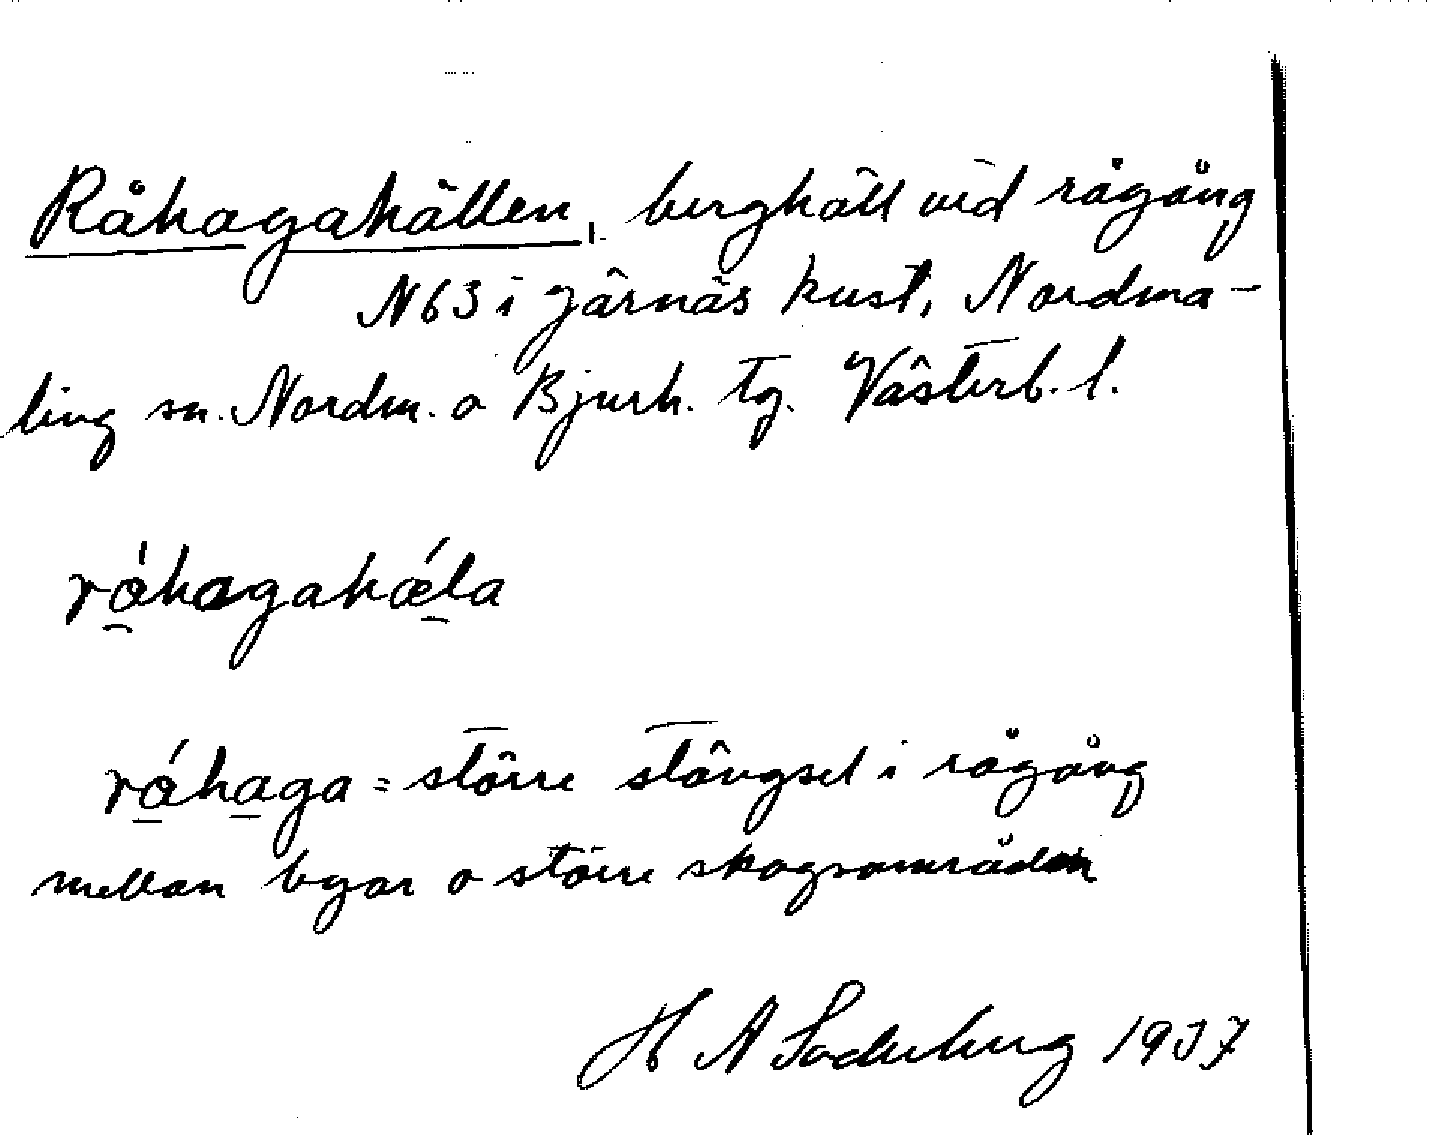 Råhagahällen, berghäll vid rågång
N63 i Järnäs kust, Nordma-
ling sn. Nordm. o Bjurh. tg. Västerb. l.
råhagahǽla
råhaga = större stängsel i rågång
mellan byar o större skogsområden
H A Söderberg 1937